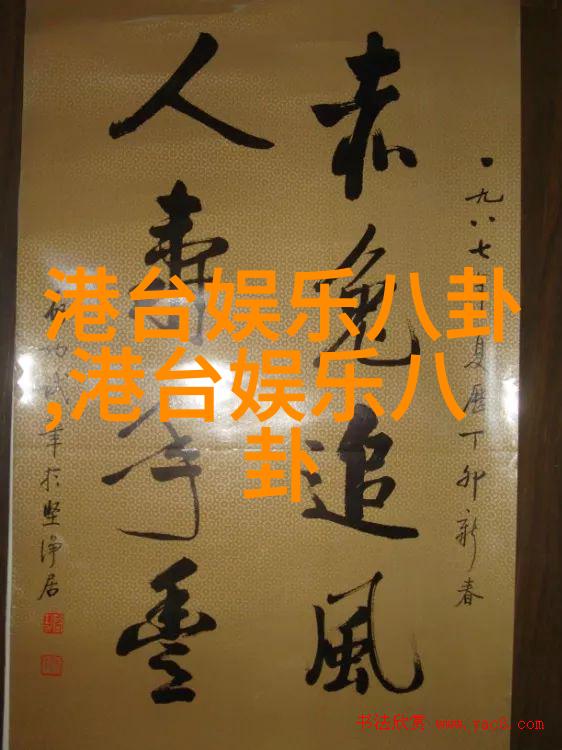 一九八七年夏歷丁卯新春
赤兔追風
人壽年豐
於堅淨居
港台娱乐八卦
,港台娱乐八
卦
书法欣赏 www.yac8.com